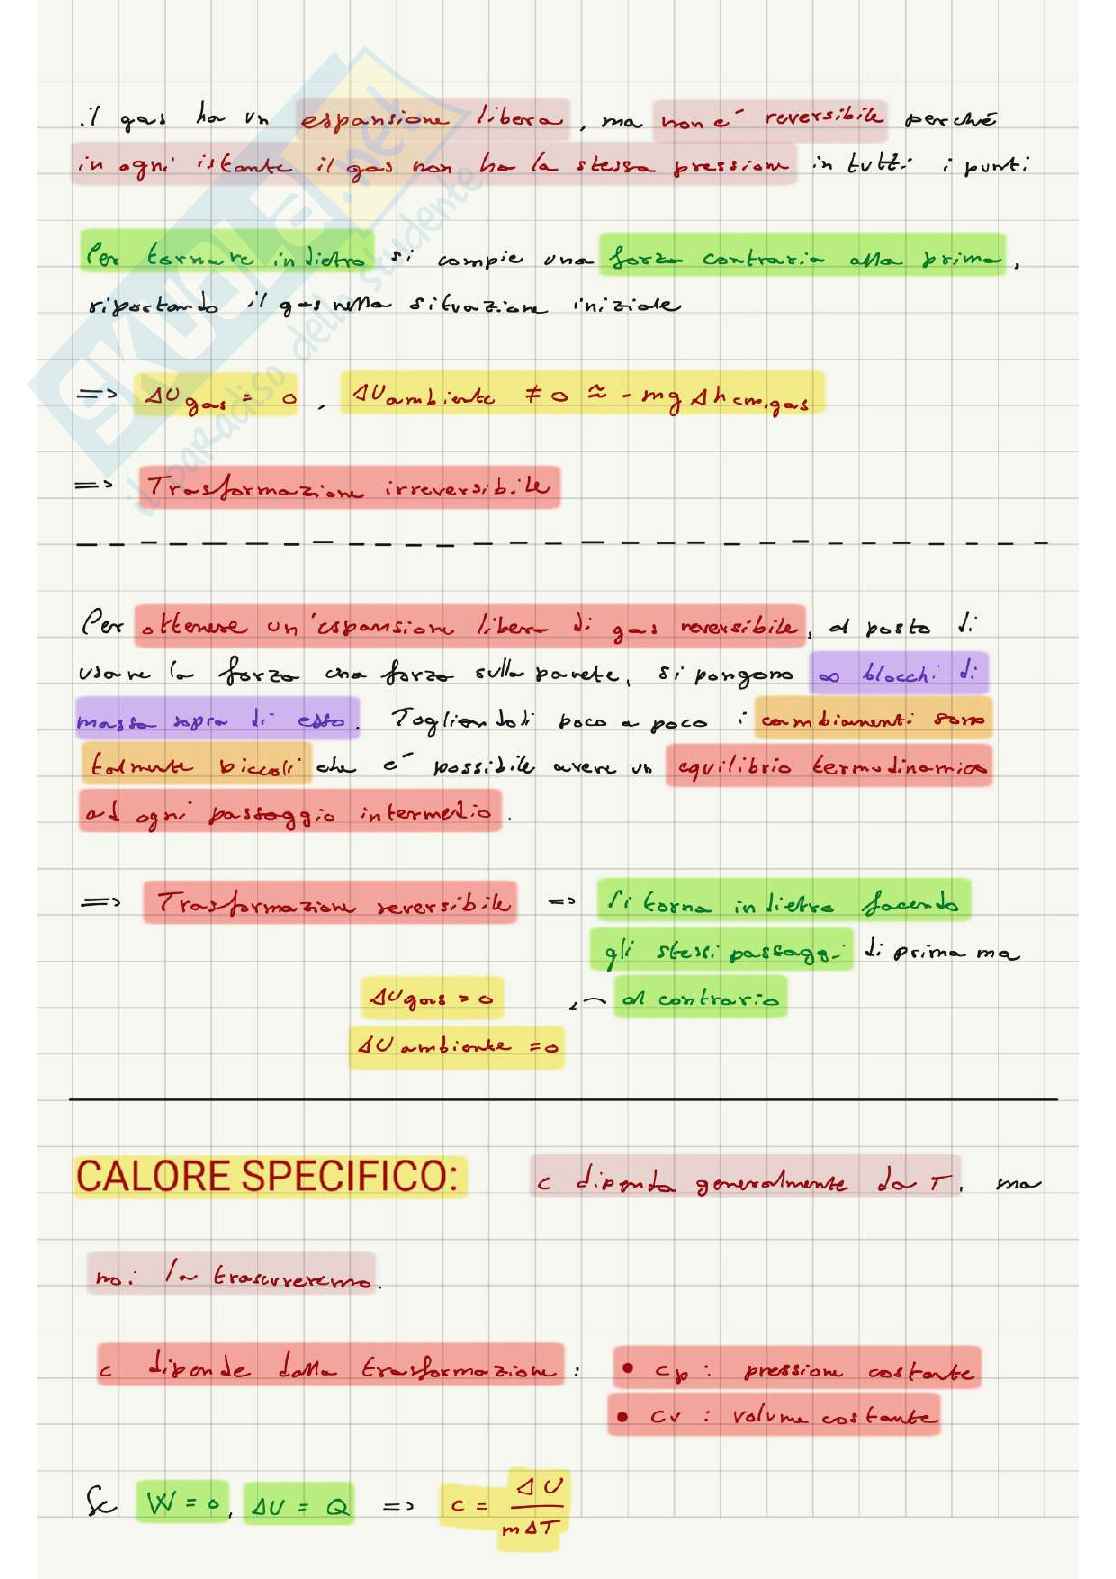 il gas ha un espansione libera, ma non è reversibile perché
in ogni istante il gas non ha la stessa pressione in tutti i punti
Per tornare indietro si compie una forza contraria alla prima,
riportando il gas nella situazione iniziale
=> ΔUgas = 0, ΔUambiente ≠ 0 ≈ - mg Δh cm,gas
=> Trasformazione irreversibile
Per ottenere un'espansione libera di gas reversibile, al posto di
usare la forza una forza sulla parete, si pongono ∞ blocchi di
massa sopra di esso. Togliendoli poco a poco i cambiamenti sono
talmente piccoli che è possibile avere un equilibrio termodinamico
ad ogni passaggio intermedio.
=> Trasformazione reversibile => Si torna indietro facendo
gli stessi passaggi di prima ma
ΔUgas = 0 al contrario
ΔU ambiente = 0
CALORE SPECIFICO: c dipende generalmente da T, ma
noi la trascureremo.
c dipende dalla trasformazione: • cp : pressione costante
• cv : volume costante
Se W = 0, ΔU = Q => c = ΔU
mΔT
SKUOLA.net
il paradiso dello studente